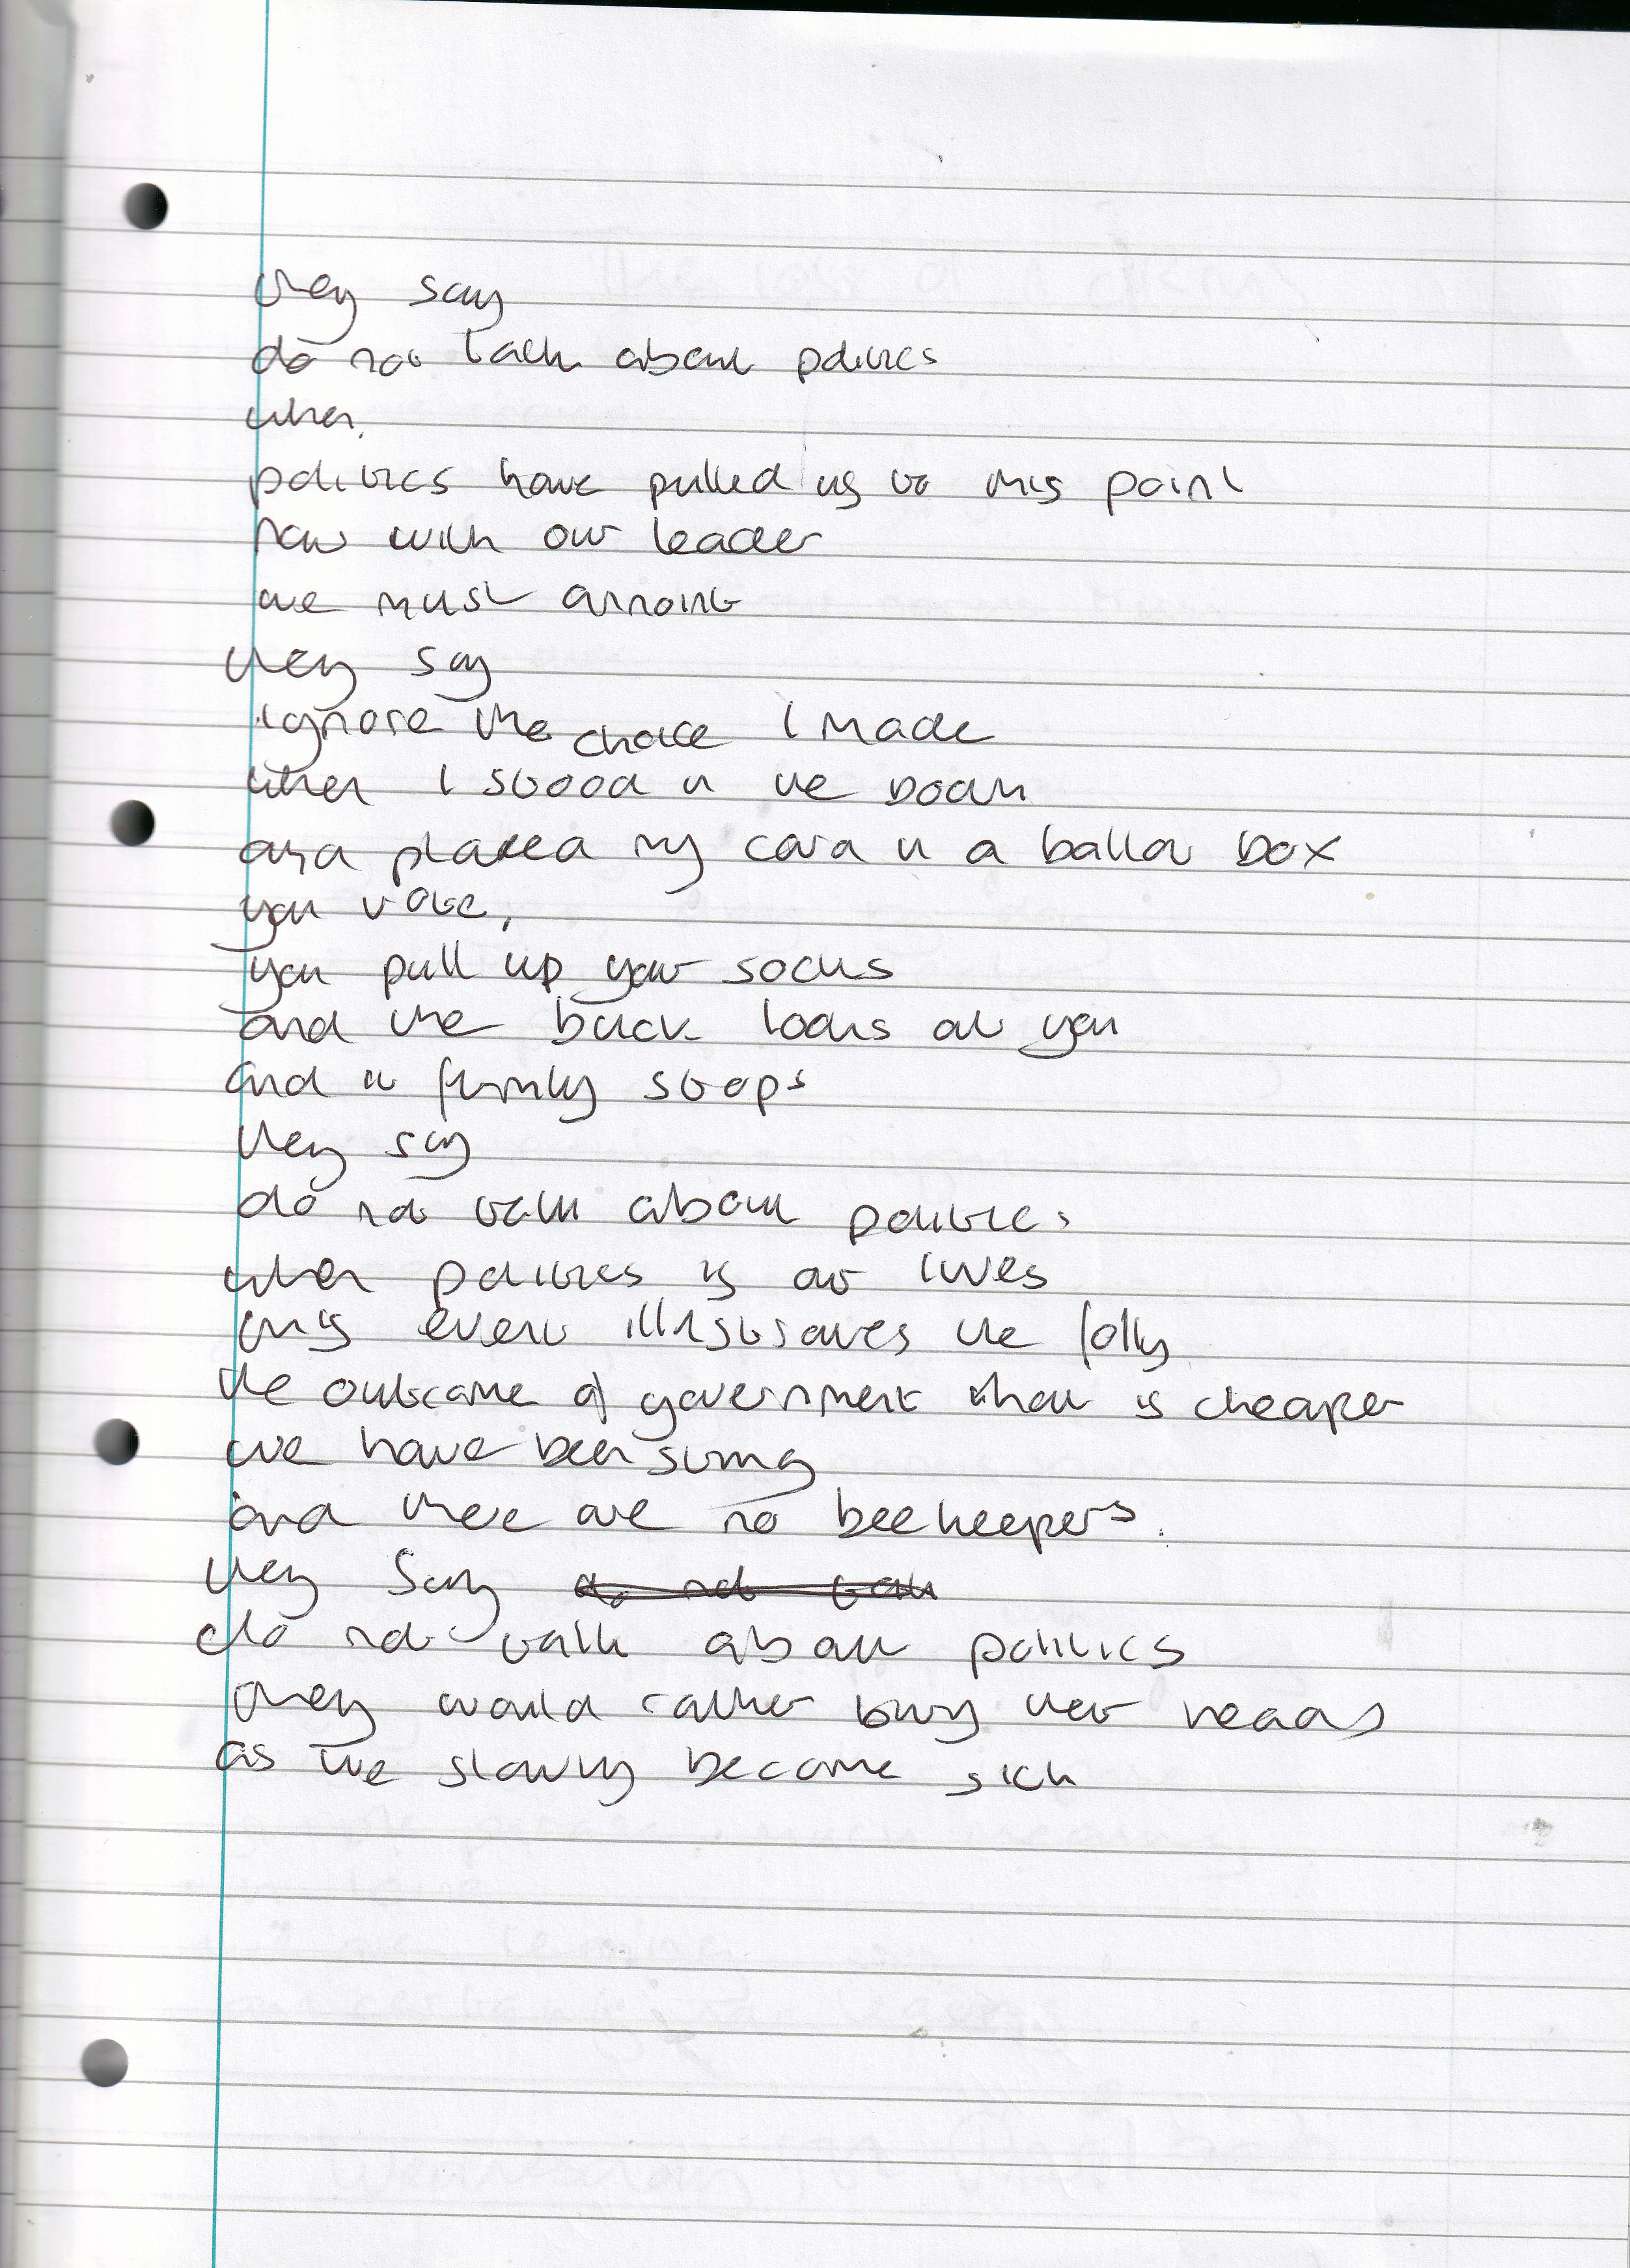 they say
do not talk about politics
when,
politics have pulled us to this point
now with our leader
we must annoint
they say
ignore the choice I made
when I stood in the booth
and placed my card in a ballot box
you vote,
you pull up your socks
and the buck looks at you
and it firmly stops
they say
do not talk about politics
when politics is our lives
this event illustrates the folly
the outcome of government that is cheaper
we have been stung
and there are no beekeepers.
they say do not talk
do not talk about politics
they would rather bury their heads
as we slowly become sick